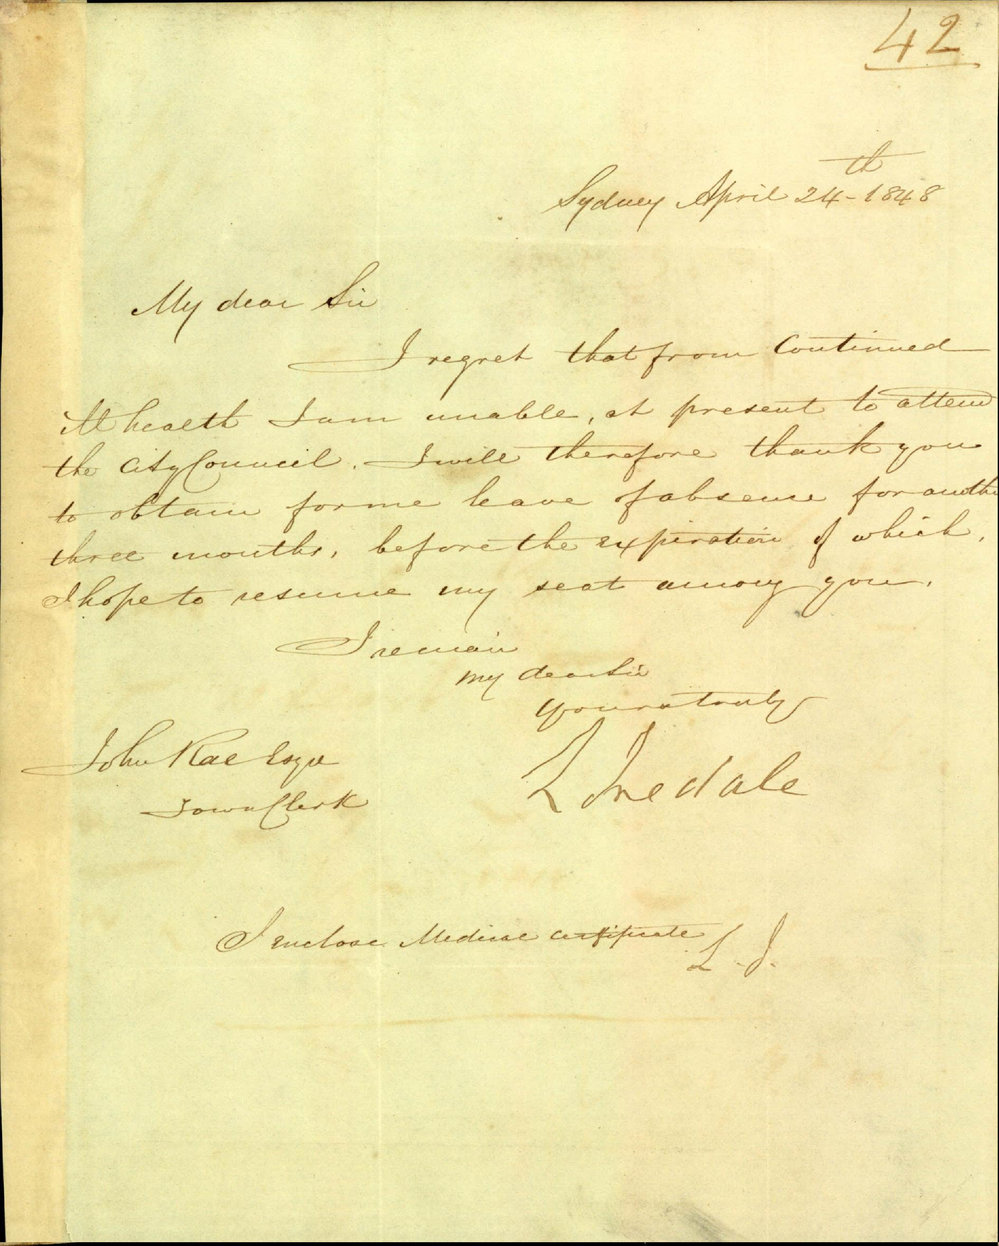 42
Sydney April 24th 1848
My dear Sir
I regret that from continued
ill health I am unable, at present to attend
the City Council. I will therefore thank you
to obtain for me leave of absence for anothe
three months, before the expiration of which,
I hope to resume my seat among you.
I remain
my dear Sir
yours truly
L Iredale
John Rae Esqre
Town Clerk
I enclose Medical certificate
L. I.